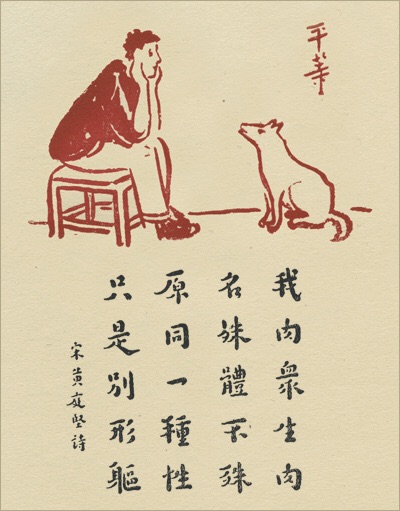 平等
我肉衆生肉
名殊體不殊
原同一種性
只是別形軀
宋黃庭堅詩